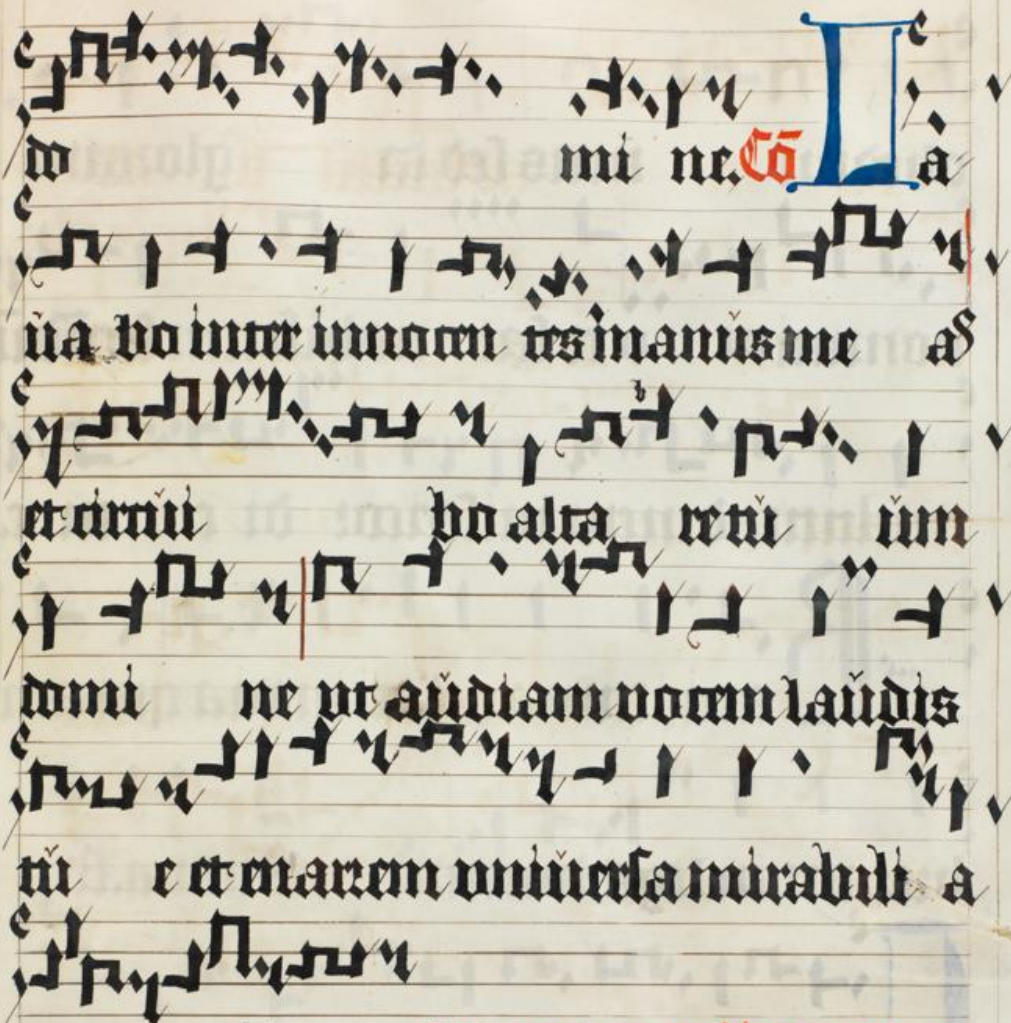 do mi ne. Cō La
ua bo inter innocen tes manus me as
et circui bo altare tu um
domi ne ut audiam vocem laudis
tu e et enarrem universa mirabili a